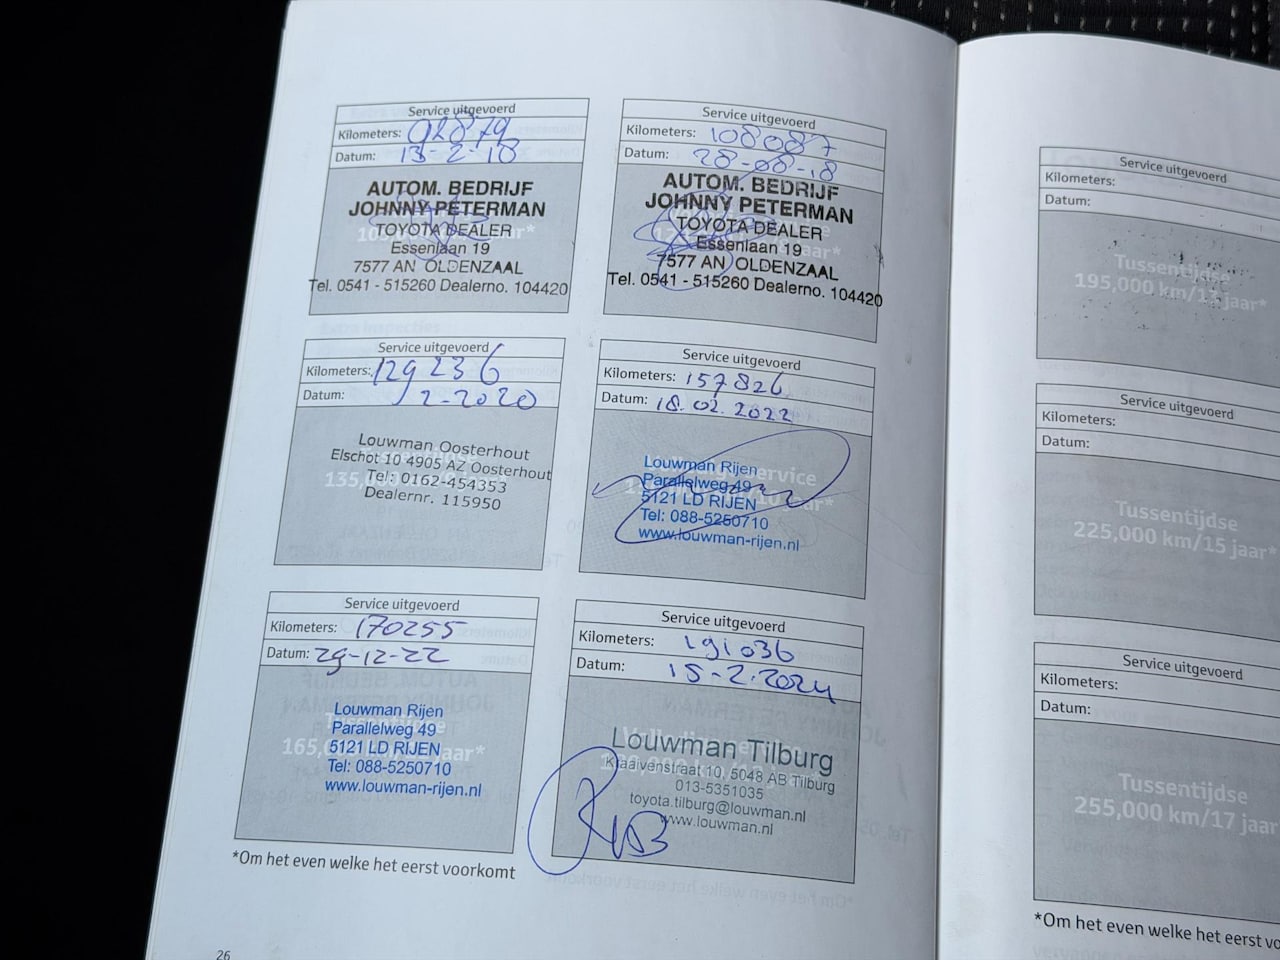 Service uitgevoerd
Kilometers: 92879
Datum: 13-2-18
AUTOM. BEDRIJF
JOHNNY PETERMAN
TOYOTA DEALER
Essenlaan 19
7577 AN OLDENZAAL
Tel. 0541 - 515260 Dealerno. 104420
Service uitgevoerd
Kilometers: 108087
Datum: 28-08-18
AUTOM. BEDRIJF
JOHNNY PETERMAN
TOYOTA DEALER
Essenlaan 19
7577 AN OLDENZAAL
Tel. 0541 - 515260 Dealerno. 104420
Service uitgevoerd
Kilometers: 129236
Datum: 2-2020
Louwman Oosterhout
Elschot 10 4905 AZ Oosterhout
Tel: 0162-454353
Dealernr. 115950
135,000
Service uitgevoerd
Kilometers: 157826
Datum: 18.02.2022
Louwman Rijen
Parallelweg 49
5121 LD RIJEN
Tel: 088-5250710
www.louwman-rijen.nl
Service uitgevoerd
Kilometers: 170255
Datum: 29-12-22
Louwman Rijen
Parallelweg 49
5121 LD RIJEN
Tel: 088-5250710
www.louwman-rijen.nl
Service uitgevoerd
Kilometers: 191036
Datum: 15-2-2024
Louwman Tilburg
Kraaivenstraat 10, 5048 AB Tilburg
013-5351035
toyota.tilburg@louwman.nl
www.louwman.nl
*Om het even welke het eerst voorkomt
26
Service uitgevoerd
Kilometers:
Datum:
Tussentijdse
195,000 km/13 jaar*
Service uitgevoerd
Kilometers:
Datum:
Tussentijdse
225,000 km/15 jaar*
Service uitgevoerd
Kilometers:
Datum:
Tussentijdse
255,000 km/17 jaar
*Om het even welke het eerst vo